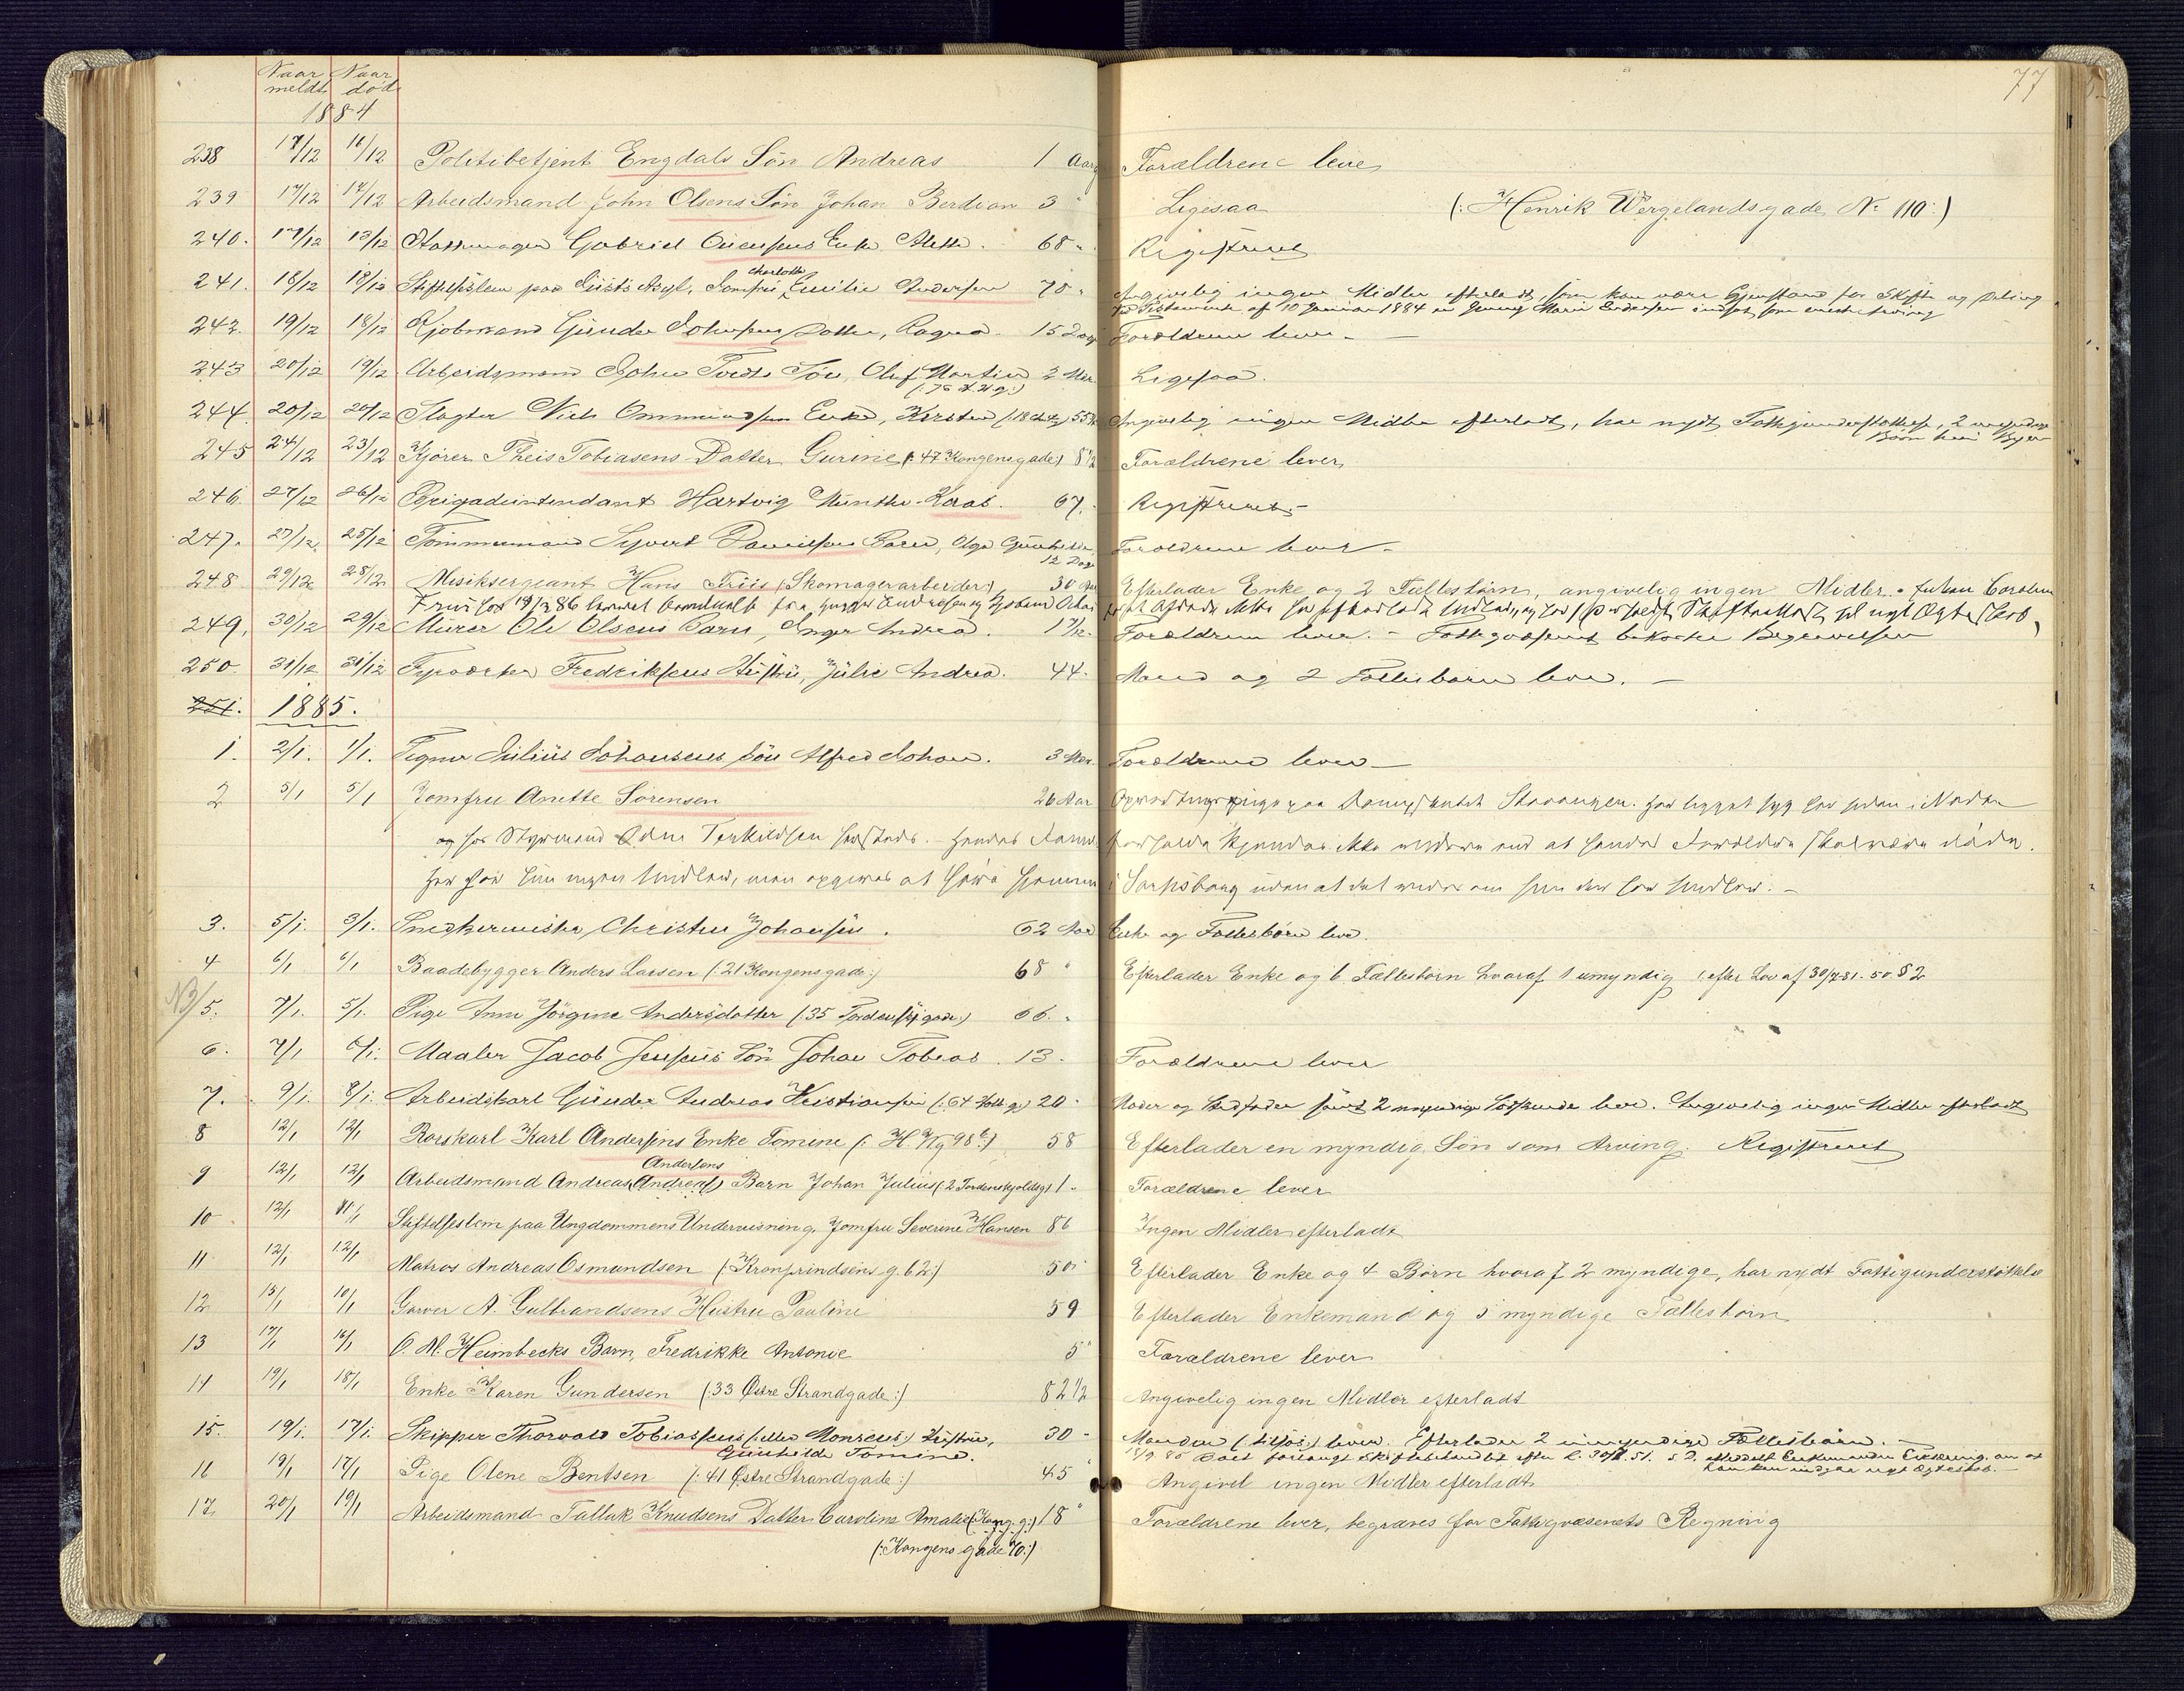 77
Naar meldt Naar død
1884
238 17/12 16/12 Politibetjent Engdals Søn Andreas 1 Aar Forældrene lever
239 17/12 17/12 Arbeidsmand John Olsens Søn Johan Berdian 3 " Ligesaa (: Henrik Wergelandsgade No 110 :)
240. 17/12 13/12 Gabriel Enke 68 " Registreret
241. 18/12 18/12 Stiftelseslem paa Asyl, Jomfru Charlotte Emilie Andersen 70 " Angivelig ingen Midler efterladt, som kan være Gjenstand for Skifte og Deling
Testamente af 10 Januar 1884 er Jenny Marie indsat som eneste Arving
242. 19/12 18/12 Kjøbmand Gunder Johnsens Datter, Ragna 15 Dage Forældrene lever —
243 20/12 19/12 Arbeidsmand John Tvedts Søn, Oluf Martin 2 Mdr. Ligesaa.
(: 76 H. W. g :)
244. 20/12 20/12 Slagter Niels Ommundsens Enke, Kirsten 55 Angivelig ingen Midler efterladt, har nydt Fattigunderstøttelse, 2 myndige
Børn her i Byen
245 24/12 23/12 Kjører Theis Tobiasens Datter Gurine (: 47 Kongensgade :) 8 1/2 Forældrene lever
246. 27/12 26/12 Brigadeintendant Hartvig Munthe-Kaas. 67. Registreret
247. 27/12 25/12 Tømmermand Sivert Danielsens Barn, Olga Gunhilde, 12 Dage Forældrene lever —
248 29/12 28/12 Musiksergeant Hans Friis (Skomagerarbeider) 30 Aar Efterlader Enke og 2 Fællesbørn, angivelig ingen Midler.
249. 30/12 29/12 Murer Ole Olsens Barn, Inger Andrea. 1 Forældrene lever. — Fattigvæsenet bekoster Begravelsen
250. 31/12 31/12 Fredriksens Hustru, Julie Andrea. 44. Mand og 2 Fællesbørn lever. —
251. 1885.
1. 2/1. 1/1. Julius Johansens Søn Alfred Johan. 3 Mdr. Forældrene lever —
2 5/1 5/1 Jomfru Anette Sørensen 26 Aar Opvartningspige paa Dampskibet Stavanger. har ligget syg her siden i
og hos Styrmand Terkildsen hersteds. — Hendes
forholde kjendes ikke videre end at hendes Forældre skal være døde.
Har her ingen Midler, men opgives at have hjemme i Sarpsborg uden at det vides om hun der har Midler. —
3. 5/1. 3/1. Snedkermester Christen Johansen. 62 Aar Enke og Fællesbørn lever.
4 6/1 6/1 Baadebygger Anders Larsen (: 21 Kongensgade :) 68 " Efterlader Enke og 6 Fællesbørn hvoraf 1 umyndig (efter Lov af 30/7 51. 50 § 2
5. 7/1. 5/1. Pige Anne Jørgine Andersdatter (: 35 Tordenskj. gade :) 66. "
6. 7/1 6/1. Maaler Jacob Jensens Søn Johan Tobias. 13. Forældrene lever
7. 9/1. 8/1. Arbeidskarl Gunder Andreas Kristiansen (: 64 Holb. g :) 20 " Moder og Stedfader samt 2 umyndige Sødskende lever. Angivelig ingen Midler efterladt
8 12/1 12/1 Rorskarl Karl Andersens Enke Tomine (: H W g 98 b :) 58 Efterlader en myndig Søn som Arving. Registreret
9 12/1 12/1 Arbeidsmand Andreas (Andreas) Andersens Barn Johan Julius (: 2 Tordenskjoldsg) 1 " Forældrene lever
10 12/1 11/1 Stiftelseslem paa Ungdommens Undervisning, Jomfru Severine Hansen 86 Ingen Midler efterladt
11 12/1 12/1 Matros Andreas Osmundsen (: Kronprindsens g. 62 :) 50 Efterlader Enke og 4 Børn hvoraf 2 myndige, har nydt Fattigunderstøttelse
12 15/1 10/1 Garver A. Gulbrandsens Hustru Pauline 59 Efterlader Enkemand og 5 myndige Fællesbørn
13 17/1 16/1 O. M. Heimbecks Barn, Fredrikke Antonie 5 " Forældrene lever
14 19/1 18/1 Enke Karen Gundersen (: 33 Østre Strandgade :) 82 1/2 Angivelig ingen Midler efterladt
15. 19/1. 17/1. Skipper Thorvald Tobiassens (: eller Monsens) Hustru, 30 " Manden (tilsjøs) lever. Efterlader 2 umyndige Fællesbørn. —
Gunhilde Tomine.
16 19/1 17/1 Pige Olene Bentsen (: 41 Østre Strandgade :) 45 " Angivel ingen Midler efterladt
17. 20/1 19/1 Arbeidsmand Tallak Knudsens Datter Caroline Amalie 18 " Forældrene lever, begraves for Fattigvæsenets Regning
(: Kongens gade 70 :)